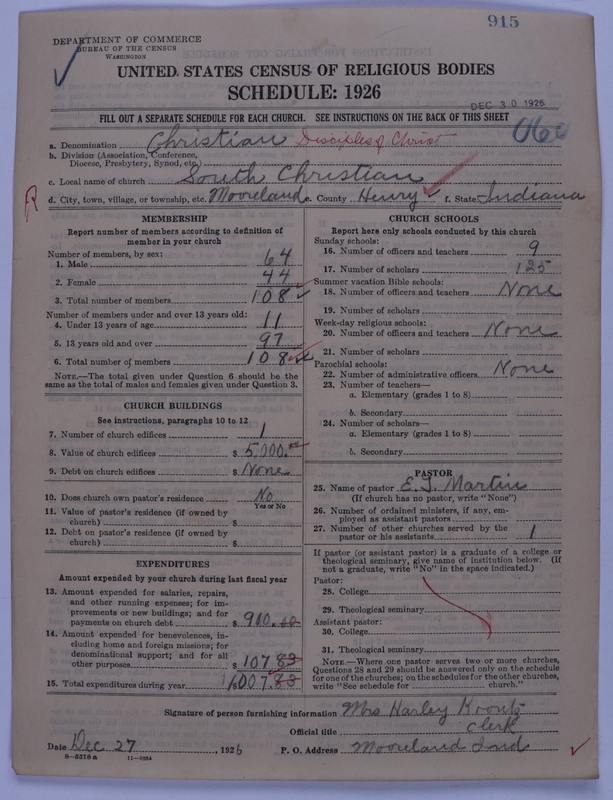 915
DEPARTMENT OF COMMERCE
BUREAU OF THE CENSUS
WASHINGTON
UNITED STATES CENSUS OF RELIGIOUS BODIES
SCHEDULE: 1926
DEC 30 1926
FILL OUT A SEPARATE SCHEDULE FOR EACH CHURCH. SEE INSTRUCTIONS ON THE BACK OF THIS SHEET
a. Denomination Christian Disciples of Christ
b. Division (Association, Conference, Diocese, Presbytery, Synod, etc.)
c. Local name of church South Christian
d. City, town, village, or township, etc. Mooreland e. County Henry f. State Indiana
MEMBERSHIP
Report number of members according to definition of
member in your church
Number of members, by sex:
1. Male 64
2. Female 44
3. Total number of members 108
Number of members under and over 13 years old:
4. Under 13 years of age 11
5. 13 years old and over 97
6. Total number of members 108
NOTE.—The total given under Question 6 should be
same as the total of males and females given under Question 3.
CHURCH BUILDINGS
See instructions, paragraphs 10 to 12
7. Number of church edifices 1
8. Value of church edifices $ 5,000.
9. Debt on church edifices $ None
10. Does church own pastor's residence No
Yes or No
11. Value of pastor's residence (if owned by
church) $
12. Debt on pastor's residence (if owned by
church) $
EXPENDITURES
Amount expended by your church during last fiscal year
13. Amount expended for salaries, repairs,
and other running expenses; for im-
provements or new buildings; and for
payments on church debt $ 900.00
14. Amount expended for benevolences, in-
cluding home and foreign missions; for
denominational support; and for all
other purposes $ 107.83
15. Total expenditures during year $ 1,007.83
CHURCH SCHOOLS
Report here only schools conducted by this church
Sunday schools:
16. Number of officers and teachers 9
17. Number of scholars 125
Summer vacation Bible schools:
18. Number of officers and teachers None
19. Number of scholars
Week-day religious schools:
20. Number of officers and teachers None
21. Number of scholars
Parochial schools:
22. Number of administrative officers None
23. Number of teachers—
a. Elementary (grades 1 to 8)
b. Secondary
24. Number of scholars—
a. Elementary (grades 1 to 8)
b. Secondary
PASTOR
25. Name of pastor E. J. Martin
(If church has no pastor, write "None")
26. Number of ordained ministers, if any, em-
ployed as assistant pastors
27. Number of other churches served by the
pastor or his assistants 1
If pastor (or assistant pastor) is a graduate of a college or
theological seminary, give name of institution below. (If
not a graduate, write "No" in the space indicated.)
Pastor:
28. College
29. Theological seminary
Assistant pastor:
30. College
31. Theological seminary
NOTE.—Where one pastor serves two or more churches,
Questions 28 and 29 should be answered only on the schedule
for one of the churches; on the schedules for the other churches,
write "See schedule for church."
Signature of person furnishing information Mrs Harley Koontz
Official title Clerk
Date Dec 27, 1926 P. O. Address Mooreland Ind
8-5318a 11-9054